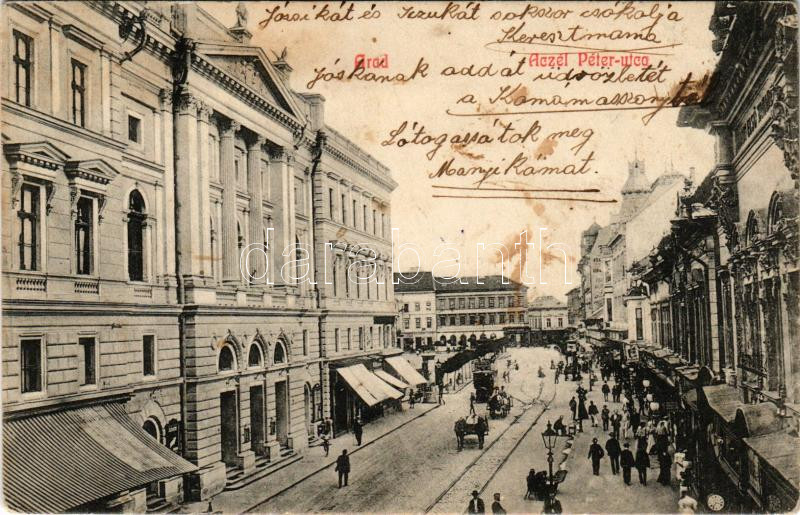 Józsikát és Iczukát sokszor csókolja
Keresztmama
Arad
Aczél Péter-utca
Jóskának addát üdvözletét
a Kamámasszony
Látogassátok meg
Manyikámat.
darabanth